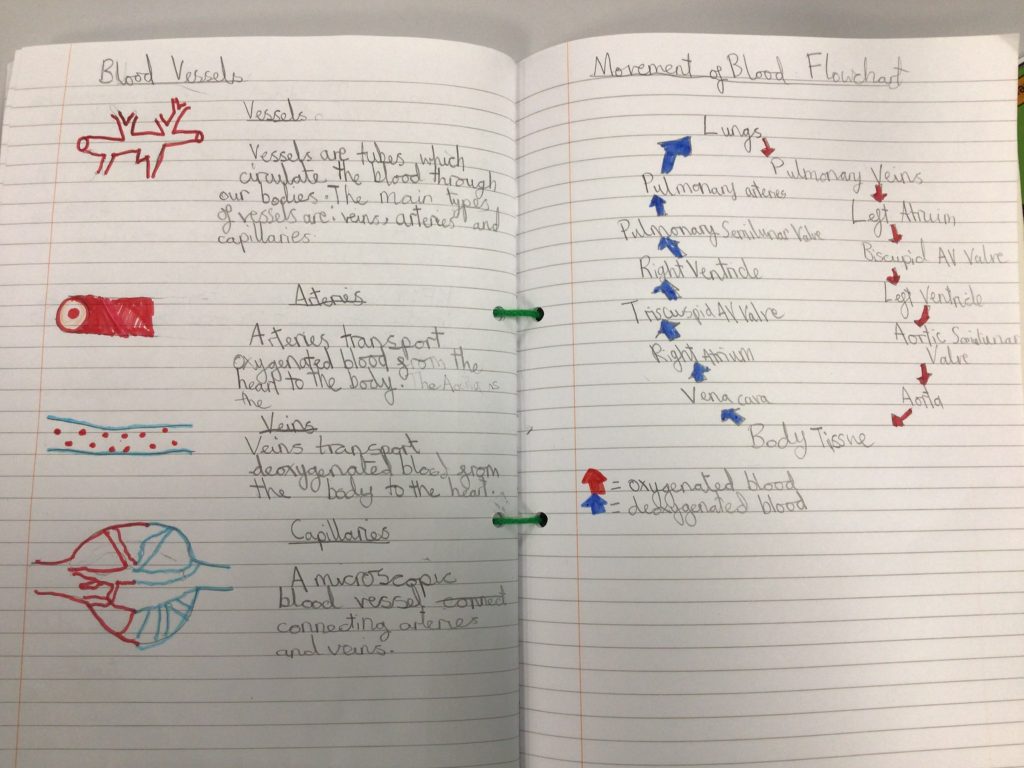 Blood Vessels
Vessels
Vessels are tubes which
circulate the blood through
our bodies. The main types
of vessels are: veins, arteries and
capillaries.
Arteries
Arteries transport
oxygenated blood from the
heart to the body. The Aorta is
the
Veins
Veins transport
deoxygenated blood from
the body to the heart.
Capillaries
A microscopic
blood vessel connect
connecting arteries
and veins.
Movement of Blood Flowchart
Lungs
Pulmonary Veins
Left Atruim
Biscupid AV Valve
Left Ventricle
Aortic Semilunar
Valve
Aorta
Body Tissue
Vena cava
Right Atrium
Triscuspid AV Valve
Right Ventricle
Pulmonary Semilunar Valve
Pulmonary arteries
= oxygenated blood
= deoxygenated blood